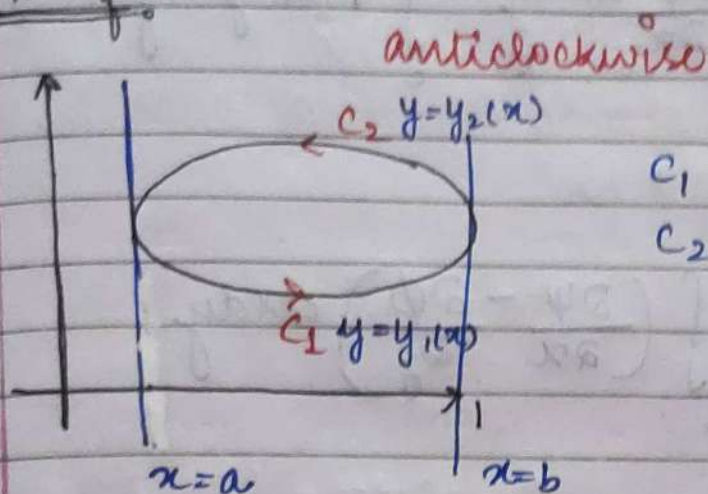 anticlockwise
C₂ y=y₂(x)
C₁
C₂
C₁ y=y₁(x)
x=a
x=b